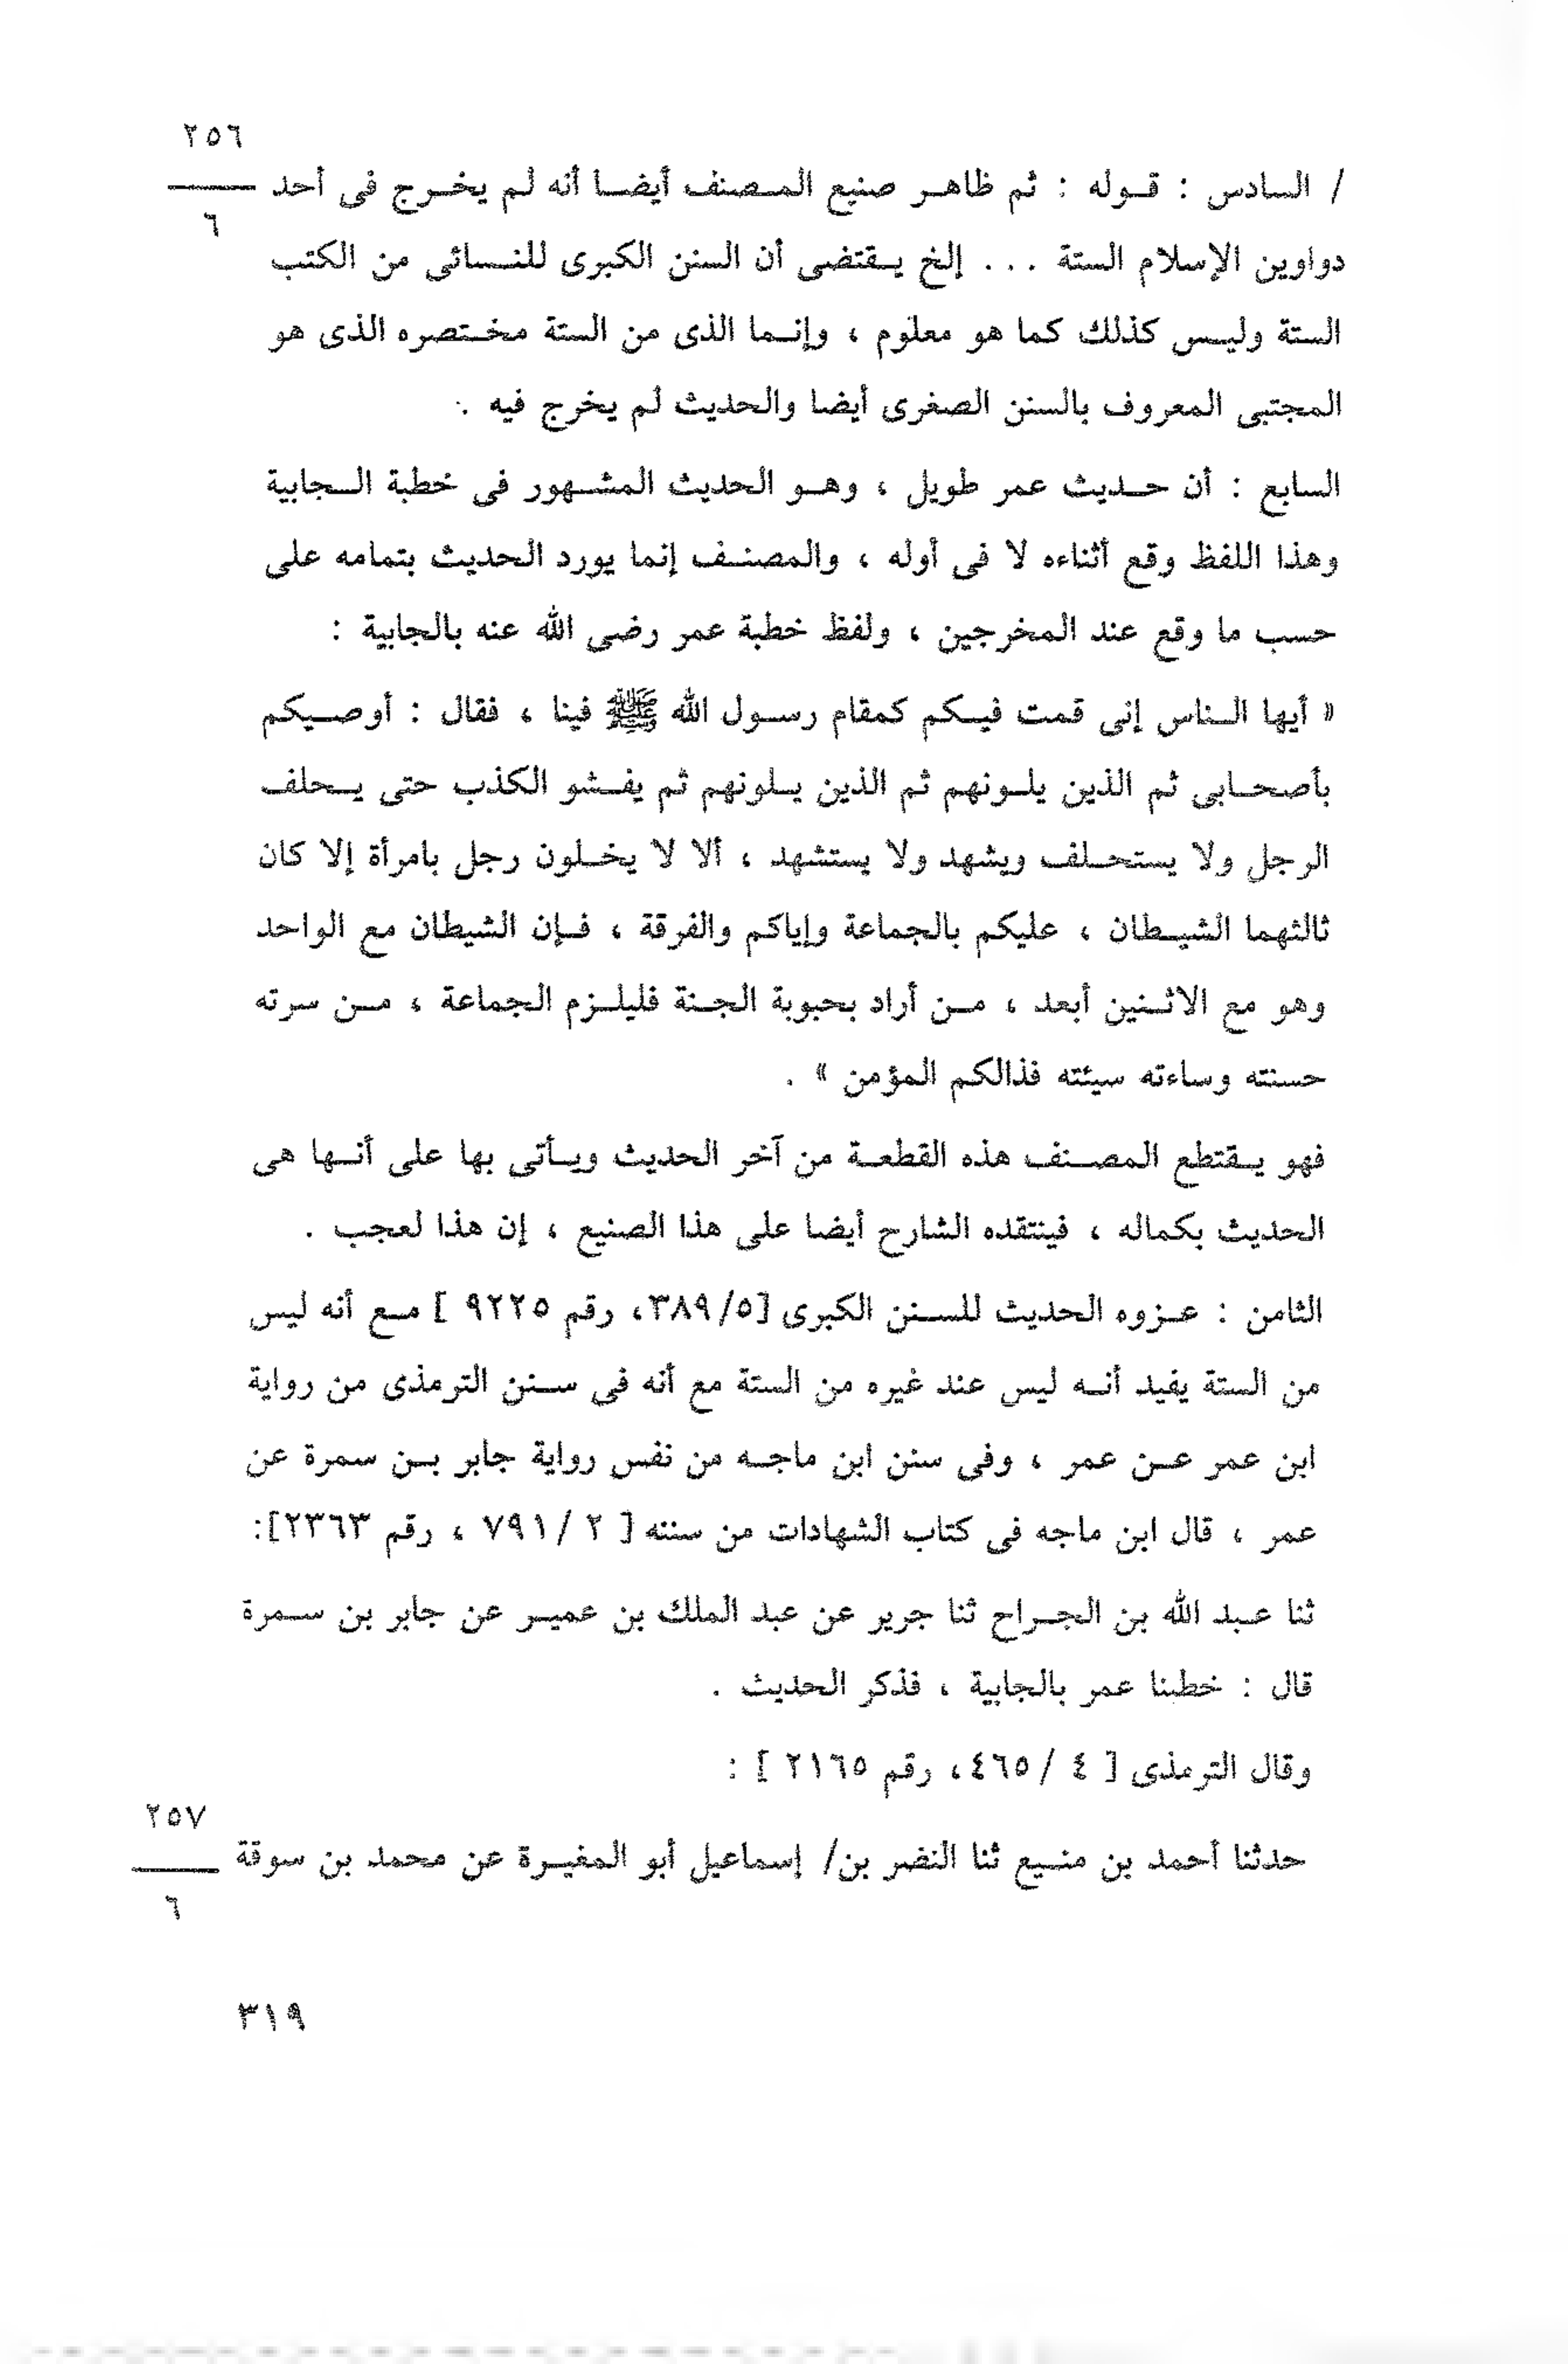 ٢٥٦
/ السادس : قوله : ثم ظاهر صنيع المصنف أيضا أنه لم يخرج فى أحد
٦
دواوين الإسلام الستة ... إلخ يقتضى أن السنن الكبرى للنسائى من الكتب
الستة وليس كذلك كما هو معلوم ، وإنما الذى من الستة مختصره الذى هو
المجتبى المعروف بالسنن الصغرى أيضا والحديث لم يخرج فيه .
السابع : أن حديث عمر طويل ، وهو الحديث المشهور فى خطبة الجابية
وهذا اللفظ وقع أثناءه لا فى أوله ، والمصنف إنما يورد الحديث بتمامه على
حسب ما وقع عند المخرجين ، ولفظ خطبة عمر رضى الله عنه بالجابية :
« أيها الناس إنى قمت فيكم كمقام رسول الله ﷺ فينا ، فقال : أوصيكم
بأصحابى ثم الذين يلونهم ثم الذين يلونهم ثم يفشو الكذب حتى يحلف
الرجل ولا يستحلف ويشهد ولا يستشهد ، ألا لا يخلون رجل بامرأة إلا كان
ثالثهما الشيطان ، عليكم بالجماعة وإياكم والفرقة ، فإن الشيطان مع الواحد
وهو مع الاثنين أبعد ، من أراد بحبوبة الجنة فليلزم الجماعة ، من سرته
حسنته وساءته سيئته فذالكم المؤمن » .
فهو يقتطع المصنف هذه القطعة من آخر الحديث ويأتى بها على أنها هى
الحديث بكماله ، فينتقده الشارح أيضا على هذا الصنيع ، إن هذا لعجب .
الثامن : عزوه الحديث للسنن الكبرى [٣٨٩/٥، رقم ٩٢٢٥ ] مع أنه ليس
من الستة يفيد أنه ليس عند غيره من الستة مع أنه فى سنن الترمذى من رواية
ابن عمر عن عمر ، وفى سنن ابن ماجه من نفس رواية جابر بن سمرة عن
عمر ، قال ابن ماجه فى كتاب الشهادات من سننه [ ٢ /٧٩١ ، رقم ٢٣٦٣]:
ثنا عبد الله بن الجراح ثنا جرير عن عبد الملك بن عمير عن جابر بن سمرة
قال : خطبنا عمر بالجابية ، فذكر الحديث .
وقال الترمذى [ ٤ /٤٦٥، رقم ٢١٦٥ ] :
٢٥٧
حدثنا أحمد بن منيع ثنا النضر بن/ إسماعيل أبو المغيرة عن محمد بن سوقة
٦
٣١٩